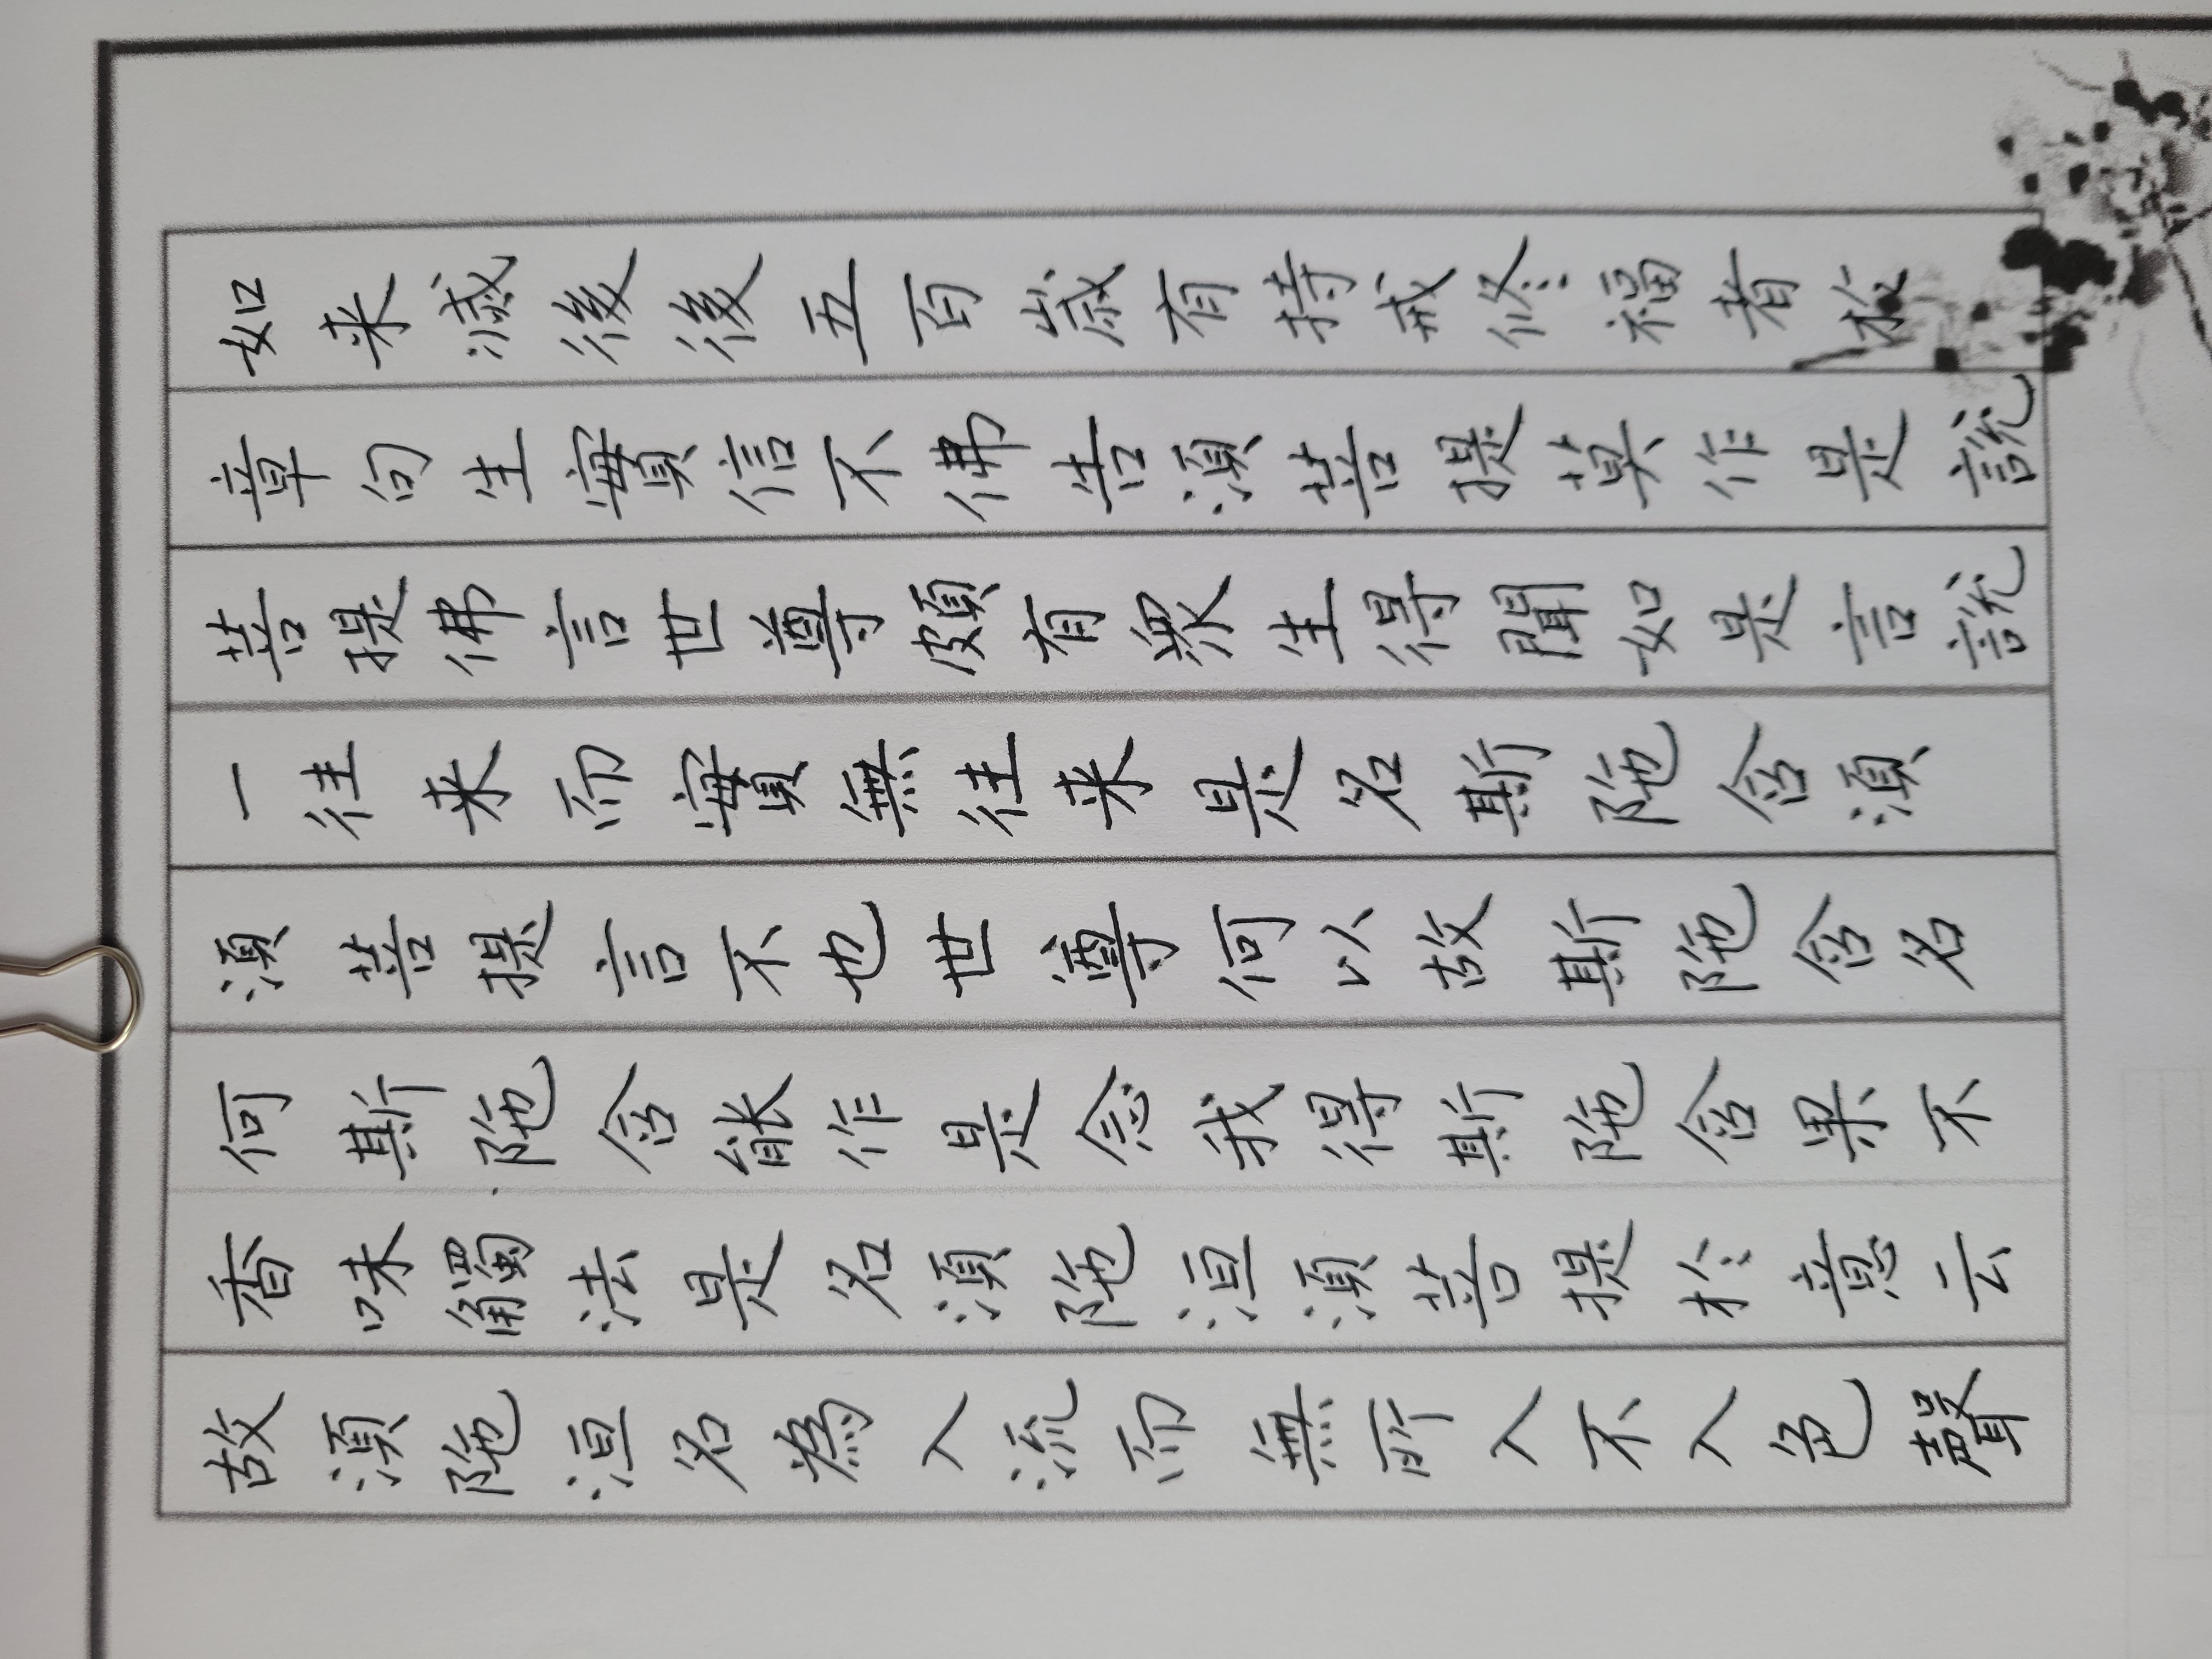 如来滅後後五百歲有持戒修福者於
章句生實信不佛告須菩提莫作是說
菩提佛言世尊頗有衆生得聞如是言說
一往来而實無往来是名斯陁含須
須菩提言不也世尊何以故斯陁含名
何斯陁含能作是念我得斯陁含果不
香味觸法是名須陁洹須菩提於意云
故須陁洹名為入流而無所入不入色聲